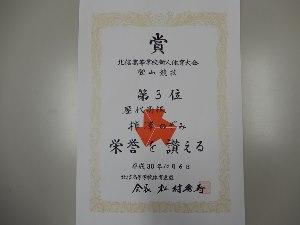 賞
北信高等学校新人体育大会
登山競技
第3位
屋代高校
栄誉を讃える
平成30年10月6日
北信高等学校体育連盟
会長